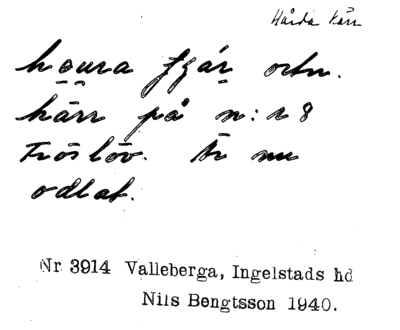 Hårda Kärr
houra tjär ortn.
kärr på n:r 8
Fröslöv. Är nu
odlat.
Nr 3914 Valleberga, Ingelstads hd
Nils Bengtsson 1940.